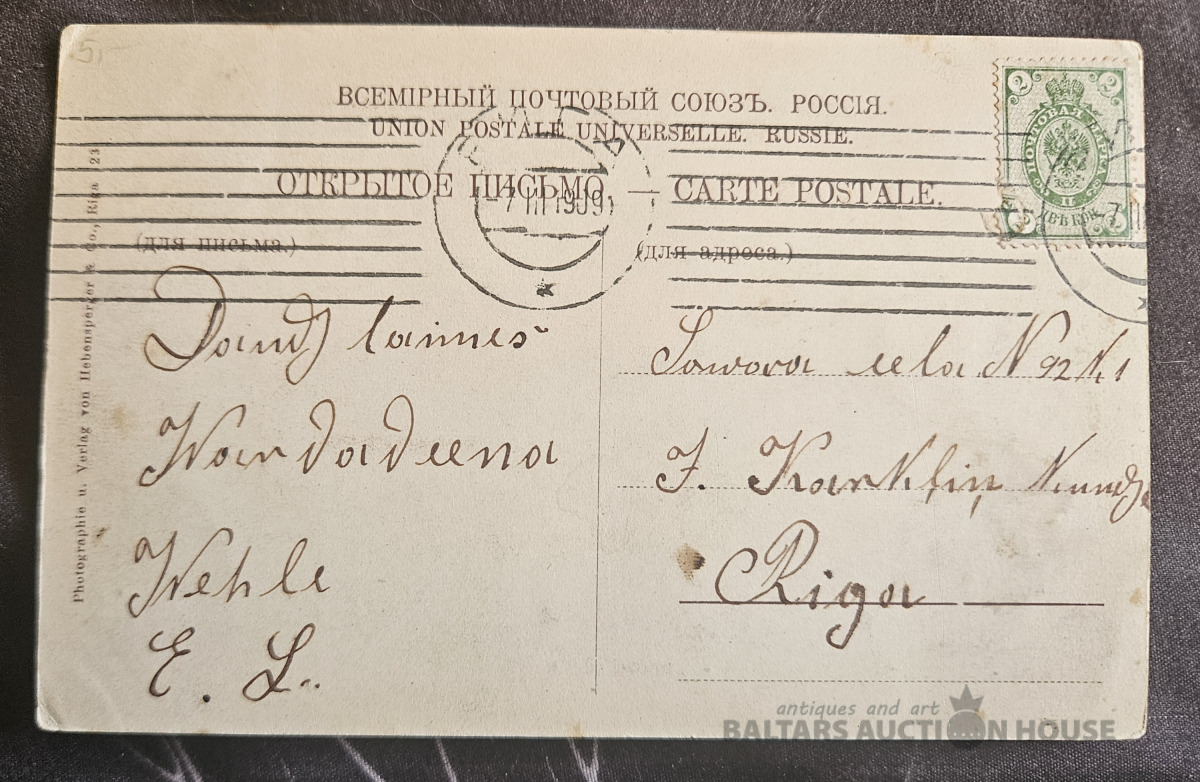 5,-
ВСЕМІРНЫЙ ПОЧТОВЫЙ СОЮЗЪ. РОССІЯ.
UNION POSTALE UNIVERSELLE. RUSSIE.
ОТКРЫТОЕ ПИСЬМО. — CARTE POSTALE.
7 III 1909
(для письма.)
(для адреса.)
2 2
ПОЧТОВАЯ МАРКА
ДВѢ КОП.
Photographie u. Verlag von Hebensperger & Co., Riga 23
Daudz laimes
Wardadeena
Wehle
E. L.
N 92
J. Karkliņ
Riga
antiques and art
BALTARS AUCTION HOUSE